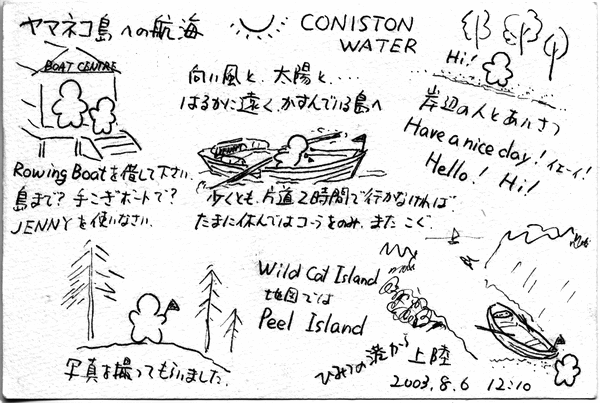 ヤマネコ島への航海
CONISTON
WATER
BOAT CENTRE
Rowing Boatを借して下さい.
島まで? 手こぎボートで?
JENNYを使いなさい.
向い風と、太陽と、・・・・
はるかに遠く、かすんでいる島へ
少くとも、片道2時間で行かなければ.
たまに休んではコーラをのみ、またこぐ.
Hi!
岸辺の人とあいさつ
Have a nice day! イエーイ!
Hello! Hi!
写真を撮ってもらいました.
Wild Cat Island
地図では
Peel Island
ひみつの港から上陸
2003.8.6 12:10